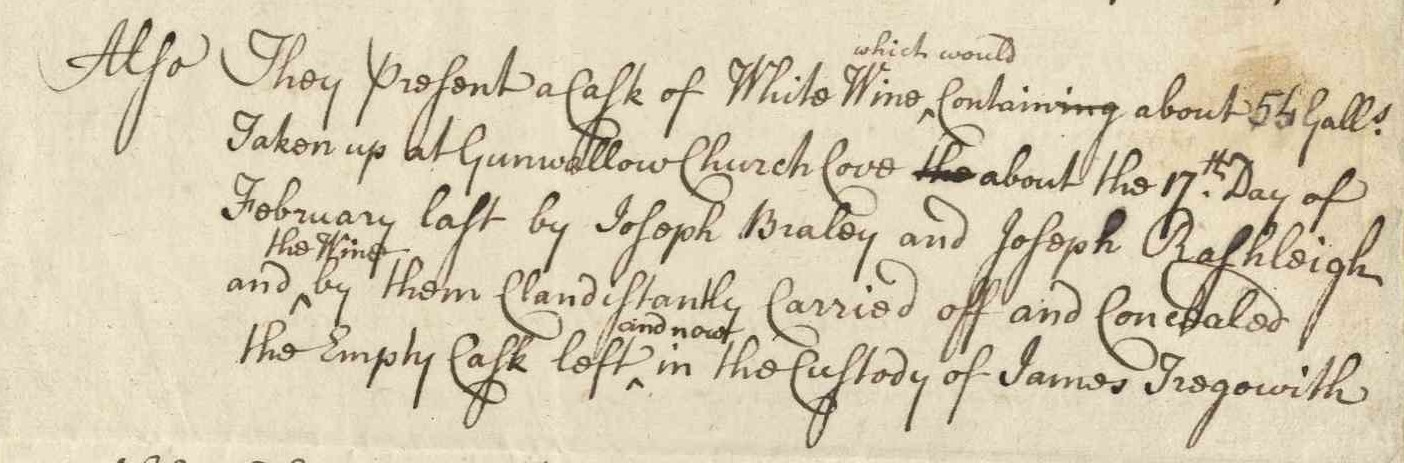 which would
Also They present a Cask of White Wine ‸ Containing about 54 Galls.
Taken up at Gunwallow Church Cove the about the 17.th Day of
February last by Joseph Braley and Joseph Rashleigh
the Wine
and ‸ by them Clandistantly Carried off and Concealed
and now
the Empty Cask left ‸ in the Custody of James Tregowith